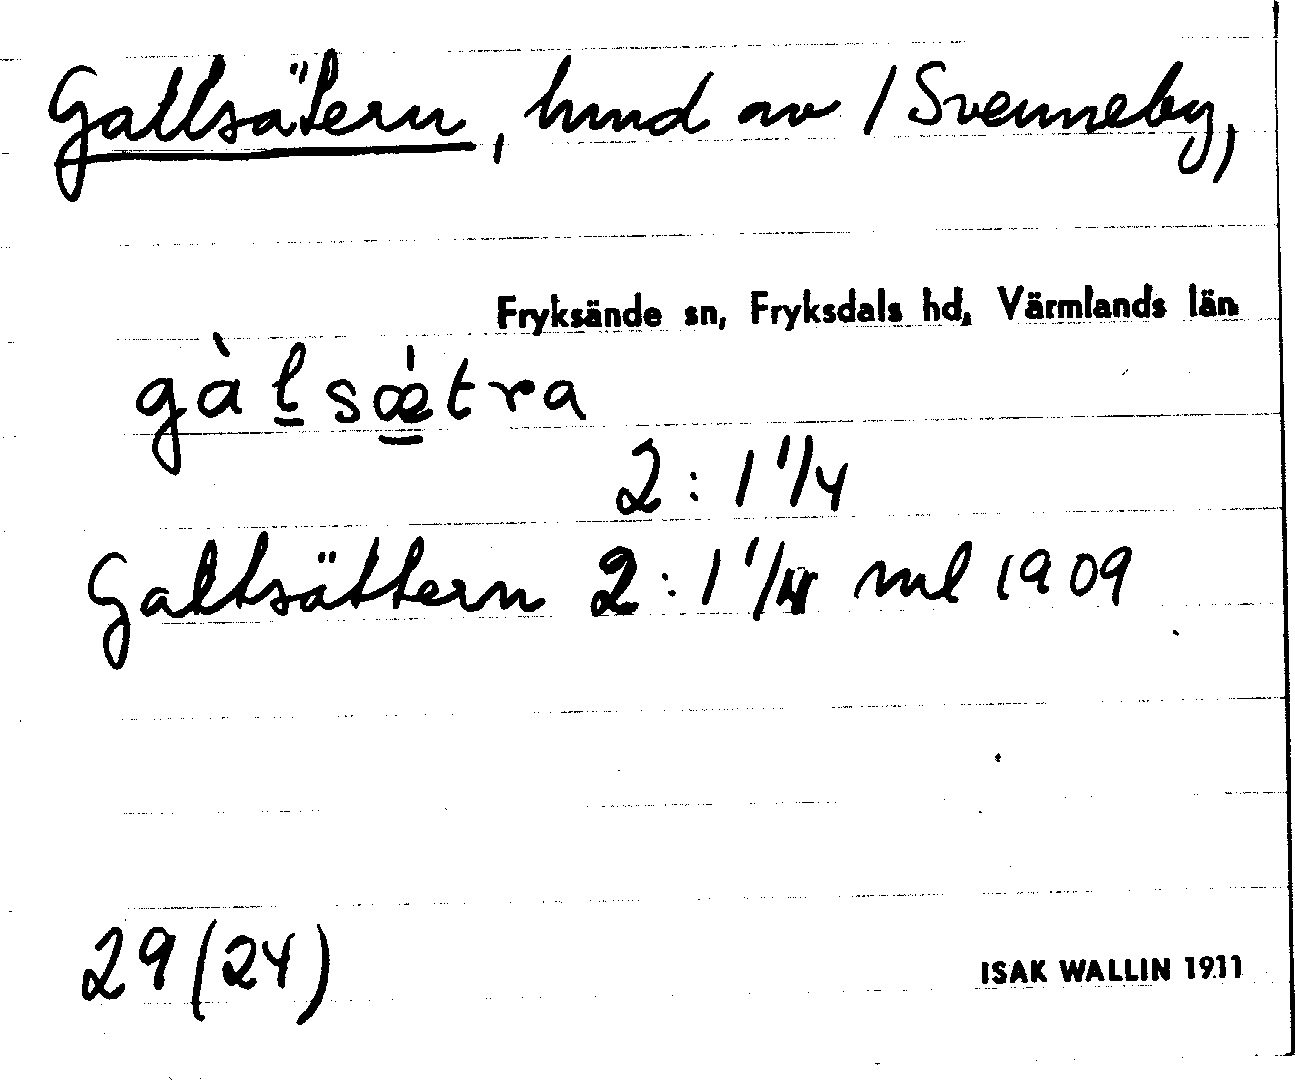 Gallsätern, hmd av 1 Svenneby,
Fryksände sn, Fryksdals hd, Värmlands län
gàlsǽtra
2:1 1/4
Galtsättern 2:1 1/4 ml 1909
29 (24)
ISAK WALLIN 1911